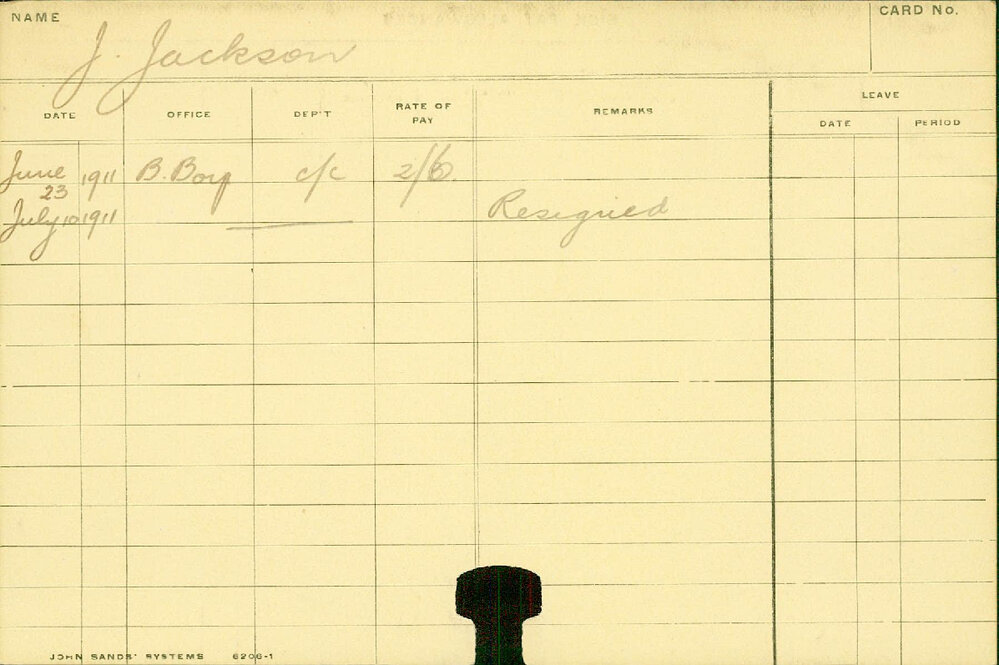 NAME CARD No.
J. Jackson
LEAVE
DATE OFFICE DEP'T RATE OF PAY REMARKS DATE PERIOD
June 23 1911 B. Boy c/c 2/6.
July 10 1911 Resigned
JOHN SANDS' SYSTEMS 6206-1